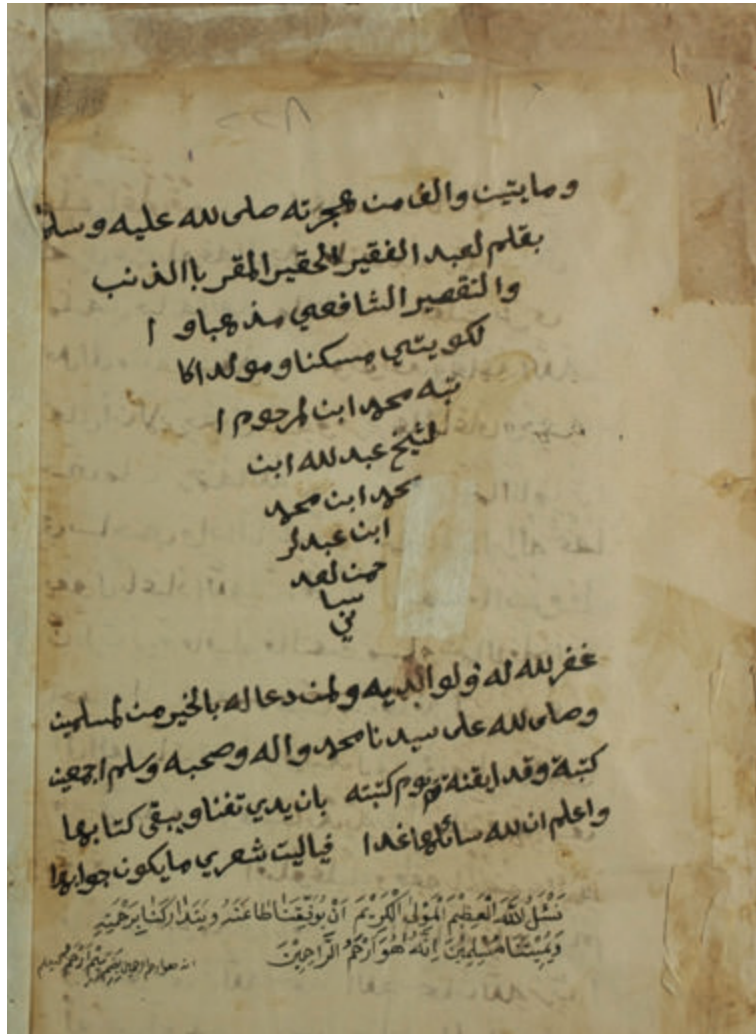 ومايتين والف من هجرته صلى لله عليه وسلم
بقلم لعبد الفقير الحقير المقر باالذنب
والتقصير الشافعي مذهباو ا
لكويتي مسكنا ومولدا كا
تبه محمد ابن لمرحوم ا
لشيخ عبد لله ابن
محمد ابن محمد
ابن عبد لر
حمن لعد
سا
ني
غفر لله له ولوالديه ولمن دعا له بالخير من لمسلمين
وصلى لله على سيدنا محمد واله وصحبه وسلم اجمعين
كتبة وقد ايقنة يوم كتبته بان يدي تفنا ويبقى كتابها
واعلم ان لله سائلها غدا فياليت شعري مايكون جوابها
نَسْئَلُ اللَّهَ الْعَظِيْمَ الْمَوْلٰى الْكَرِيْمَ اَنْ يُوَفِّقَنَا لِطَاعَتِهِ وَيَتَدَارَكَنَا بِرَحْمَتِهِ
وَيُمِيْتَنَا مُسْلِمِيْنَ اِنَّهُ هُوَ اَرْحَمُ الرَّاحِمِيْنَ